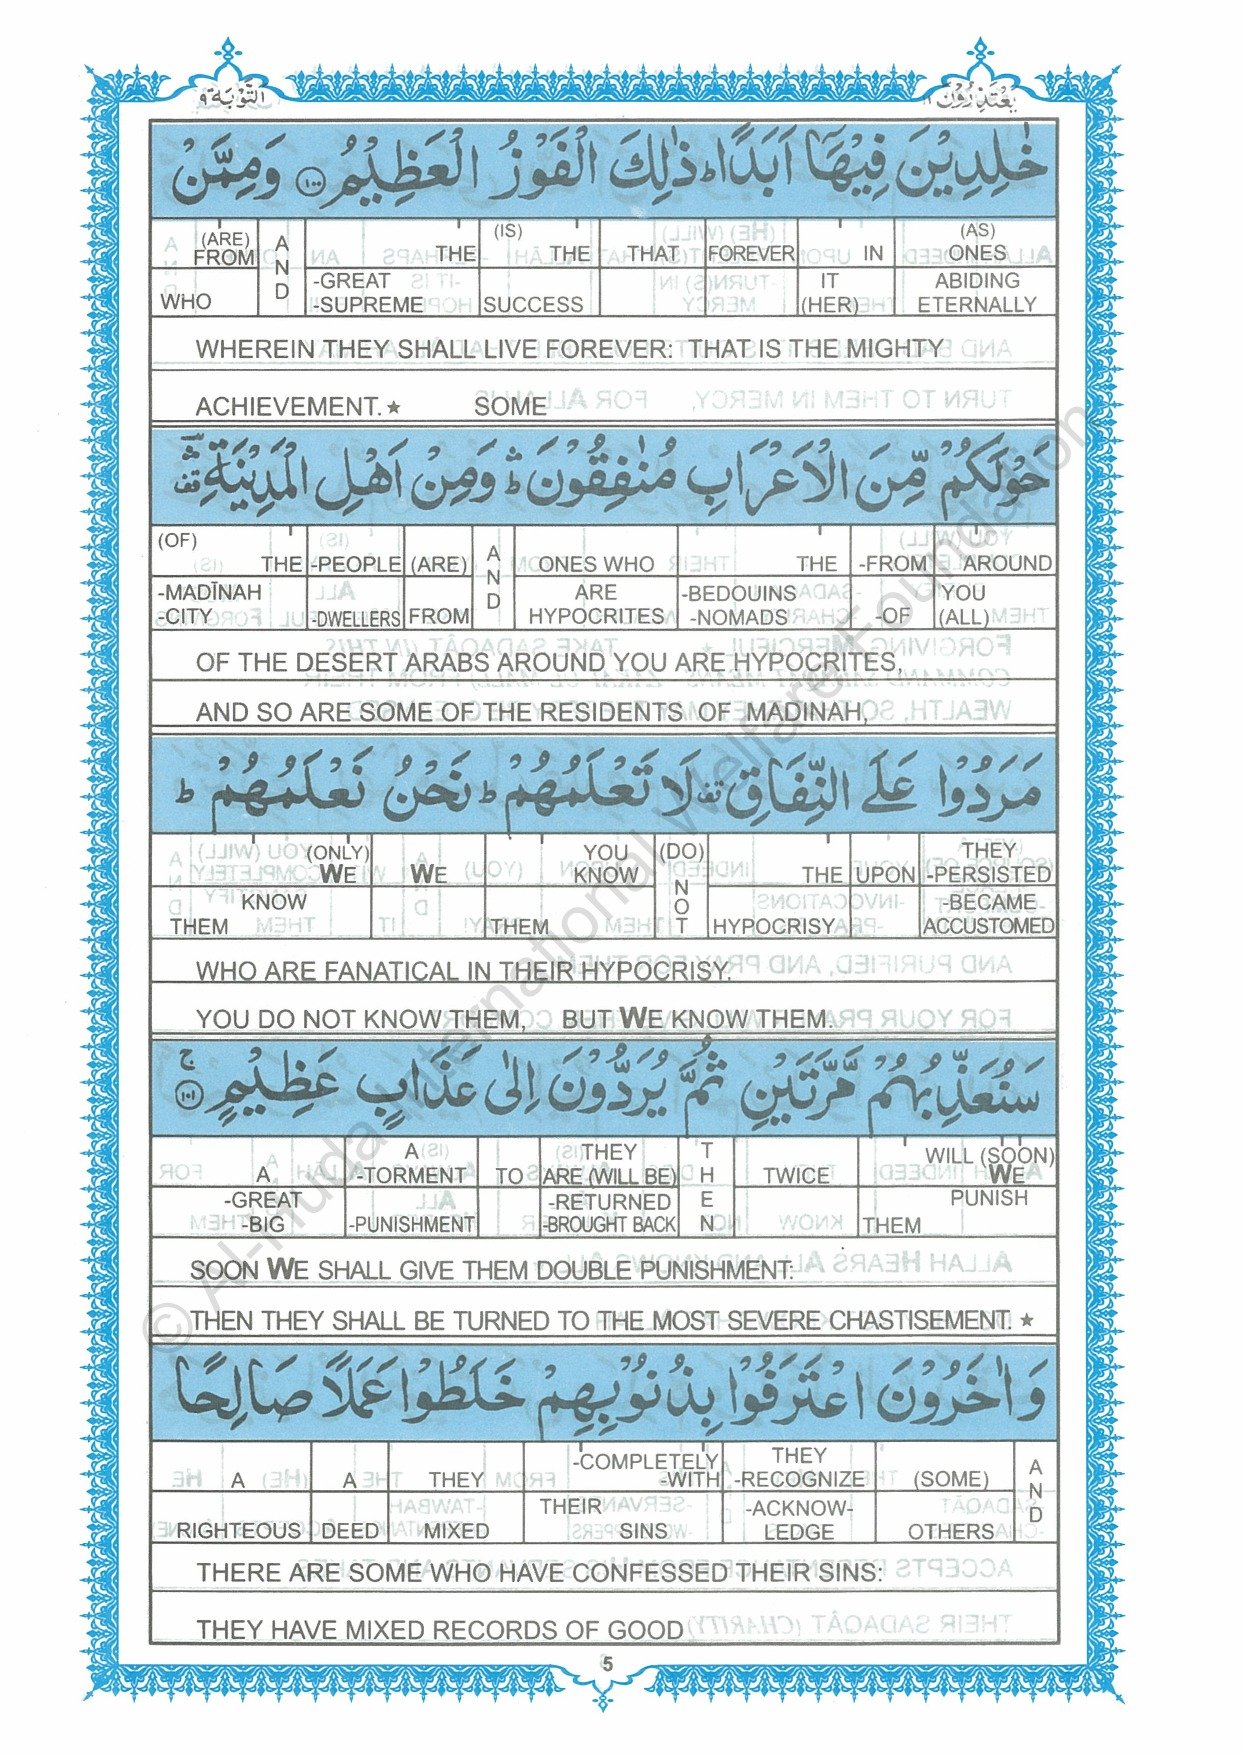 التَّوْبَة ٩
يَعْتَذِرُوْنَ ١١
خٰلِدِيْنَ فِيْهَاۤ اَبَدًا ؕ ذٰلِكَ الْفَوْزُ الْعَظِيْمُ ۝۱۰۰ وَمِمَّنْ
(ARE) FROM WHO
AND
THE -GREAT -SUPREME
(IS) THE SUCCESS
THAT
FOREVER
IN
IT (HER)
(AS) ONES ABIDING ETERNALLY
WHEREIN THEY SHALL LIVE FOREVER: THAT IS THE MIGHTY
ACHIEVEMENT.★ SOME
حَوْلَكُمْ مِّنَ الْاَعْرَابِ مُنٰفِقُوْنَ ۛؕ وَمِنْ اَهْلِ الْمَدِيْنَةِ ۛؔ قف
(OF) THE -MADĪNAH -CITY
-PEOPLE -DWELLERS
(ARE) FROM
AND
ONES WHO ARE HYPOCRITES
THE -BEDOUINS -NOMADS
-FROM -OF
AROUND YOU (ALL)
OF THE DESERT ARABS AROUND YOU ARE HYPOCRITES,
AND SO ARE SOME OF THE RESIDENTS OF MADINAH,
مَرَدُوْا عَلَى النِّفَاقِ قف لَا تَعْلَمُهُمْ ؕ نَحْنُ نَعْلَمُهُمْ ؕ
(ONLY) WE KNOW THEM
WE
YOU KNOW THEM
(DO) NOT
THE HYPOCRISY
UPON
THEY -PERSISTED -BECAME ACCUSTOMED
WHO ARE FANATICAL IN THEIR HYPOCRISY.
YOU DO NOT KNOW THEM, BUT WE KNOW THEM.
سَنُعَذِّبُهُمْ مَّرَّتَيْنِ ثُمَّ يُرَدُّوْنَ اِلٰى عَذَابٍ عَظِيْمٍ ۝۱۰۱ ج
A -GREAT -BIG
A -TORMENT -PUNISHMENT
TO
THEY ARE (WILL BE) -RETURNED -BROUGHT BACK
THEN
TWICE
WILL (SOON) WE PUNISH THEM
SOON WE SHALL GIVE THEM DOUBLE PUNISHMENT:
THEN THEY SHALL BE TURNED TO THE MOST SEVERE CHASTISEMENT. ★
وَاٰخَرُوْنَ اعْتَرَفُوْا بِذُنُوْبِهِمْ خَلَطُوْا عَمَلًا صَالِحًا
A RIGHTEOUS
A DEED
THEY MIXED
-COMPLETELY -WITH THEIR SINS
THEY -RECOGNIZE -ACKNOW- LEDGE
(SOME) OTHERS
AND
THERE ARE SOME WHO HAVE CONFESSED THEIR SINS:
THEY HAVE MIXED RECORDS OF GOOD
5
© Al-Huda International Welfare Foundation